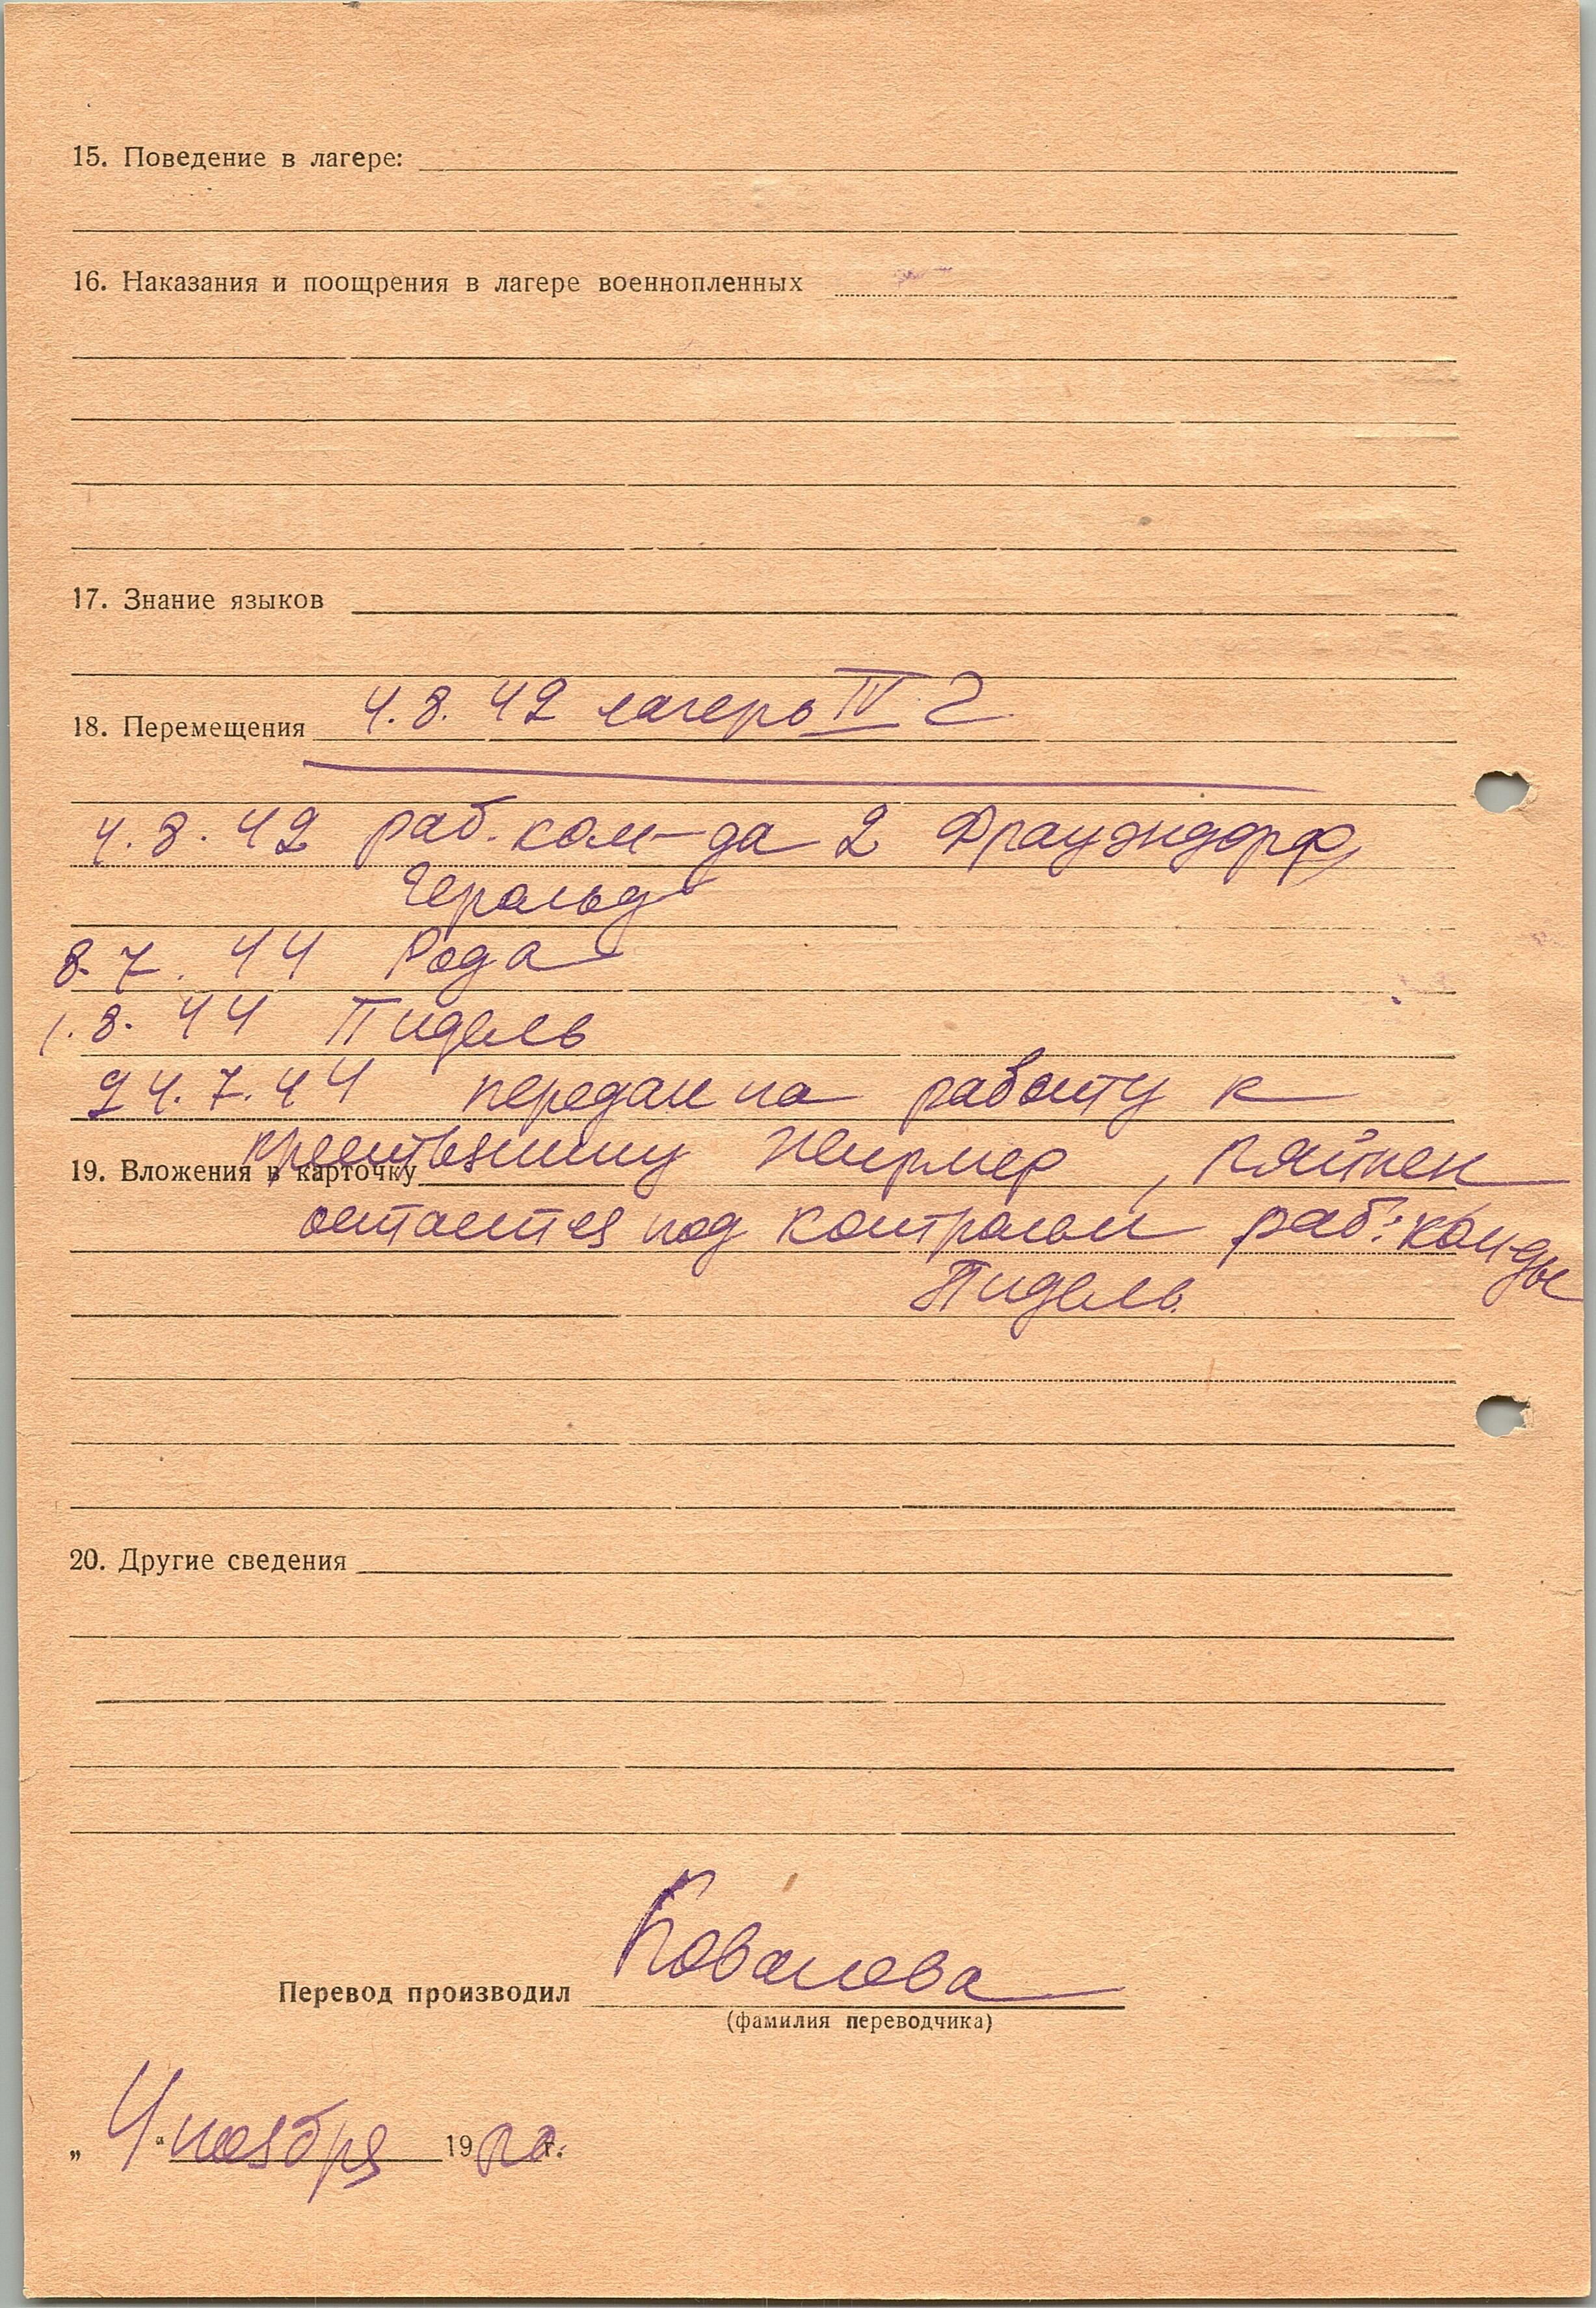 15. Поведение в лагере:
16. Наказания и поощрения в лагере военнопленных
17. Знание языков
18. Перемещения 4.8.42 лагерь IV Г
4.8.42 раб.ком-да 2 Фрауэндорф,
Геральд
8.7.44 Рода
1.8.44 Пидель
24.7.44 передан на работу к
крестьянину
19. Вложения в карточку
остается под контролем раб. ком-ды
Пидель.
20. Другие сведения
Перевод производил Ковалева
(фамилия переводчика)
„4“ ноября 19 г.